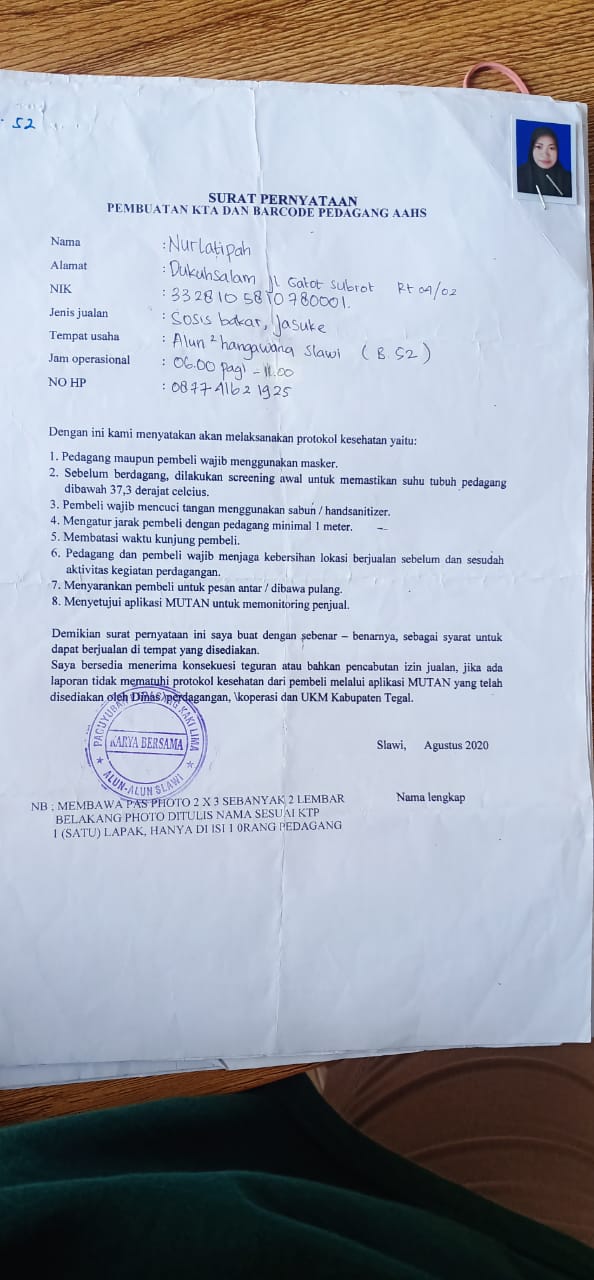 52
SURAT PERNYATAAN
PEMBUATAN KTA DAN BARCODE PEDAGANG AAHS
Nama : Nurlatipah
Alamat : Dukuhsalam Jl Gatot Subrot Rt 04/02
NIK : 33 28 10 58 10 780001.
Jenis jualan : Sosis bakar, Jasuke
Tempat usaha : Alun² hangawana Slawi ( B. 52 )
Jam operasional : 06.00 pagi - 11.00
NO HP : 0877 4162 1925
Dengan ini kami menyatakan akan melaksanakan protokol kesehatan yaitu:
1. Pedagang maupun pembeli wajib menggunakan masker.
2. Sebelum berdagang, dilakukan screening awal untuk memastikan suhu tubuh pedagang
dibawah 37,3 derajat celcius.
3. Pembeli wajib mencuci tangan menggunakan sabun / handsanitizer.
4. Mengatur jarak pembeli dengan pedagang minimal 1 meter.
5. Membatasi waktu kunjung pembeli.
6. Pedagang dan pembeli wajib menjaga kebersihan lokasi berjualan sebelum dan sesudah
aktivitas kegiatan perdagangan.
7. Menyarankan pembeli untuk pesan antar / dibawa pulang.
8. Menyetujui aplikasi MUTAN untuk memonitoring penjual.
Demikian surat pernyataan ini saya buat dengan sebenar – benarnya, sebagai syarat untuk
dapat berjualan di tempat yang disediakan.
Saya bersedia menerima konsekuesi teguran atau bahkan pencabutan izin jualan, jika ada
laporan tidak mematuhi protokol kesehatan dari pembeli melalui aplikasi MUTAN yang telah
disediakan oleh Dinas perdagangan, \koperasi dan UKM Kabupaten Tegal.
PAGUYUBAN PEDAGANG KAKI LIMA
KARYA BERSAMA
ALUN-ALUN SLAWI
Slawi, Agustus 2020
Nama lengkap
NB ; MEMBAWA PAS PHOTO 2 X 3 SEBANYAK 2 LEMBAR
BELAKANG PHOTO DITULIS NAMA SESUAI KTP
1 (SATU) LAPAK, HANYA DI ISI 1 0RANG PEDAGANG